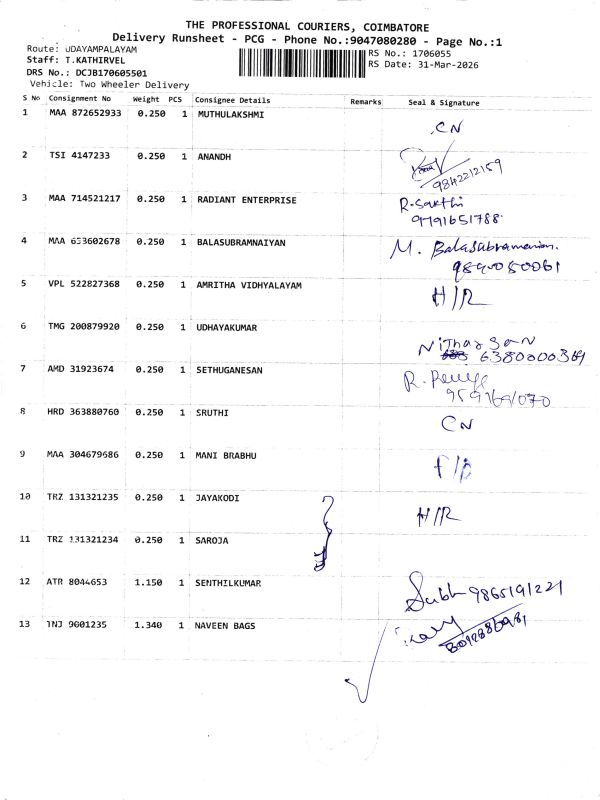 THE PROFESSIONAL COURIERS, COIMBATORE
Delivery Runsheet - PCG - Phone No.:9047080280 - Page No.:1
Route: UDAYAMPALAYAM
RS No.: 1706055
Staff: T.KATHIRVEL
RS Date: 31-Mar-2026
DRS No.: DCJB170605501
Vehicle: Two Wheeler Delivery
S No Consignment No Weight PCS Consignee Details Remarks Seal & Signature
1 MAA 872652933 0.250 1 MUTHULAKSHMI
CN
2 TSI 4147233 0.250 1 ANANDH
9842212159
3 MAA 714521217 0.250 1 RADIANT ENTERPRISE R. Sakthi
9791651788
4 MAA 633602678 0.250 1 BALASUBRAMNAIYAN M. Balasubramanian.
9840080061
5 VPL 522827368 0.250 1 AMRITHA VIDHYALAYAM H/R
6 TMG 200879920 0.250 1 UDHAYAKUMAR
Nitharsan
6380000369
7 AMD 31923674 0.250 1 SETHUGANESAN R.
9591691070
8 HRD 363880760 0.250 1 SRUTHI CN
9 MAA 304679686 0.250 1 MANI BRABHU
10 TRZ 131321235 0.250 1 JAYAKODI H/R
11 TRZ 131321234 0.250 1 SAROJA
12 ATR 8044653 1.150 1 SENTHILKUMAR
9865191221
13 TNJ 9001235 1.340 1 NAVEEN BAGS